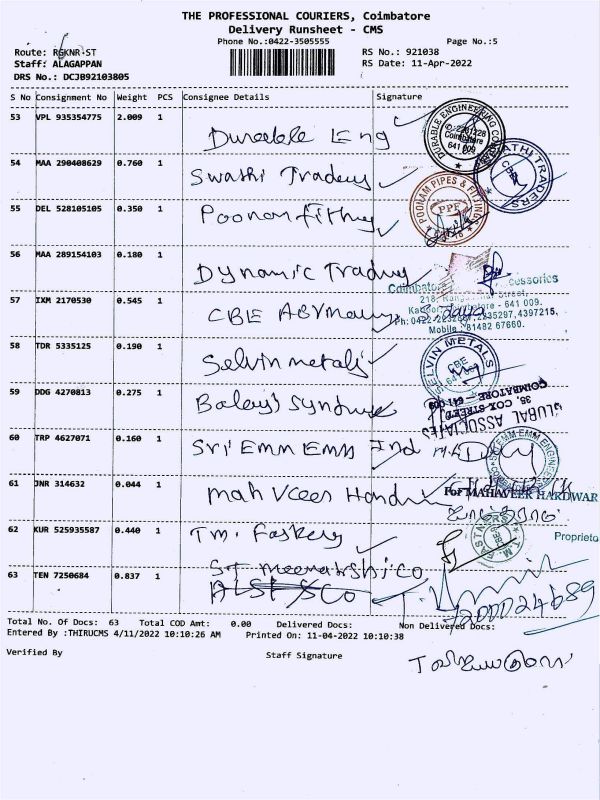 THE PROFESSIONAL COURIERS, Coimbatore
Delivery Runsheet - CMS
Phone No.:0422-3505555 Page No.:5
Route: RSKNR-ST RS No.: 921038
Staff: ALAGAPPAN RS Date: 11-Apr-2022
DRS No.: DCJB92103805
S No Consignment No Weight PCS Consignee Details Signature
53 VPL 935354775 2.009 1
Durable Eng
DURABLE ENGINEERING
Coimbatore
641 009
54 MAA 290408629 0.760 1
Swathi Traders
SWATHI TRADERS
CBE
55 DEL 528105105 0.350 1
Poonam fithng
POONAM PIPES & FITTINGS
PPF
56 MAA 289154103 0.180 1
Dynamic Trading
Coimbatore Accessories
57 IXM 2170530 0.545 1
Street,
Coimbatore - 641 009.
Ph: 0422-2232887, 2235297, 4397215,
Mobile: 81482 67660.
58 TDR 5335125 0.190 1
Selvin metals
SELVIN METALS
CBE
59 DDG 4270813 0.275 1
COX STREET
COIMBATORE
GLOBAL ASSOCIATES
60 TRP 4627071 0.160 1
Sri Emm Emm Ind
61 JNR 314632 0.044 1
For MAHAVEER HARDWAR
Proprieto
62 KUR 525935587 0.440 1
T.M. FASTNERS
CBE
63 TEN 7250684 0.837 1
Sri meenakshi Co
Total No. Of Docs: 63 Total COD Amt: 0.00 Delivered Docs: Non Delivered Docs:
Entered By :THIRUCMS 4/11/2022 10:10:26 AM Printed On: 11-04-2022 10:10:38
Verified By Staff Signature